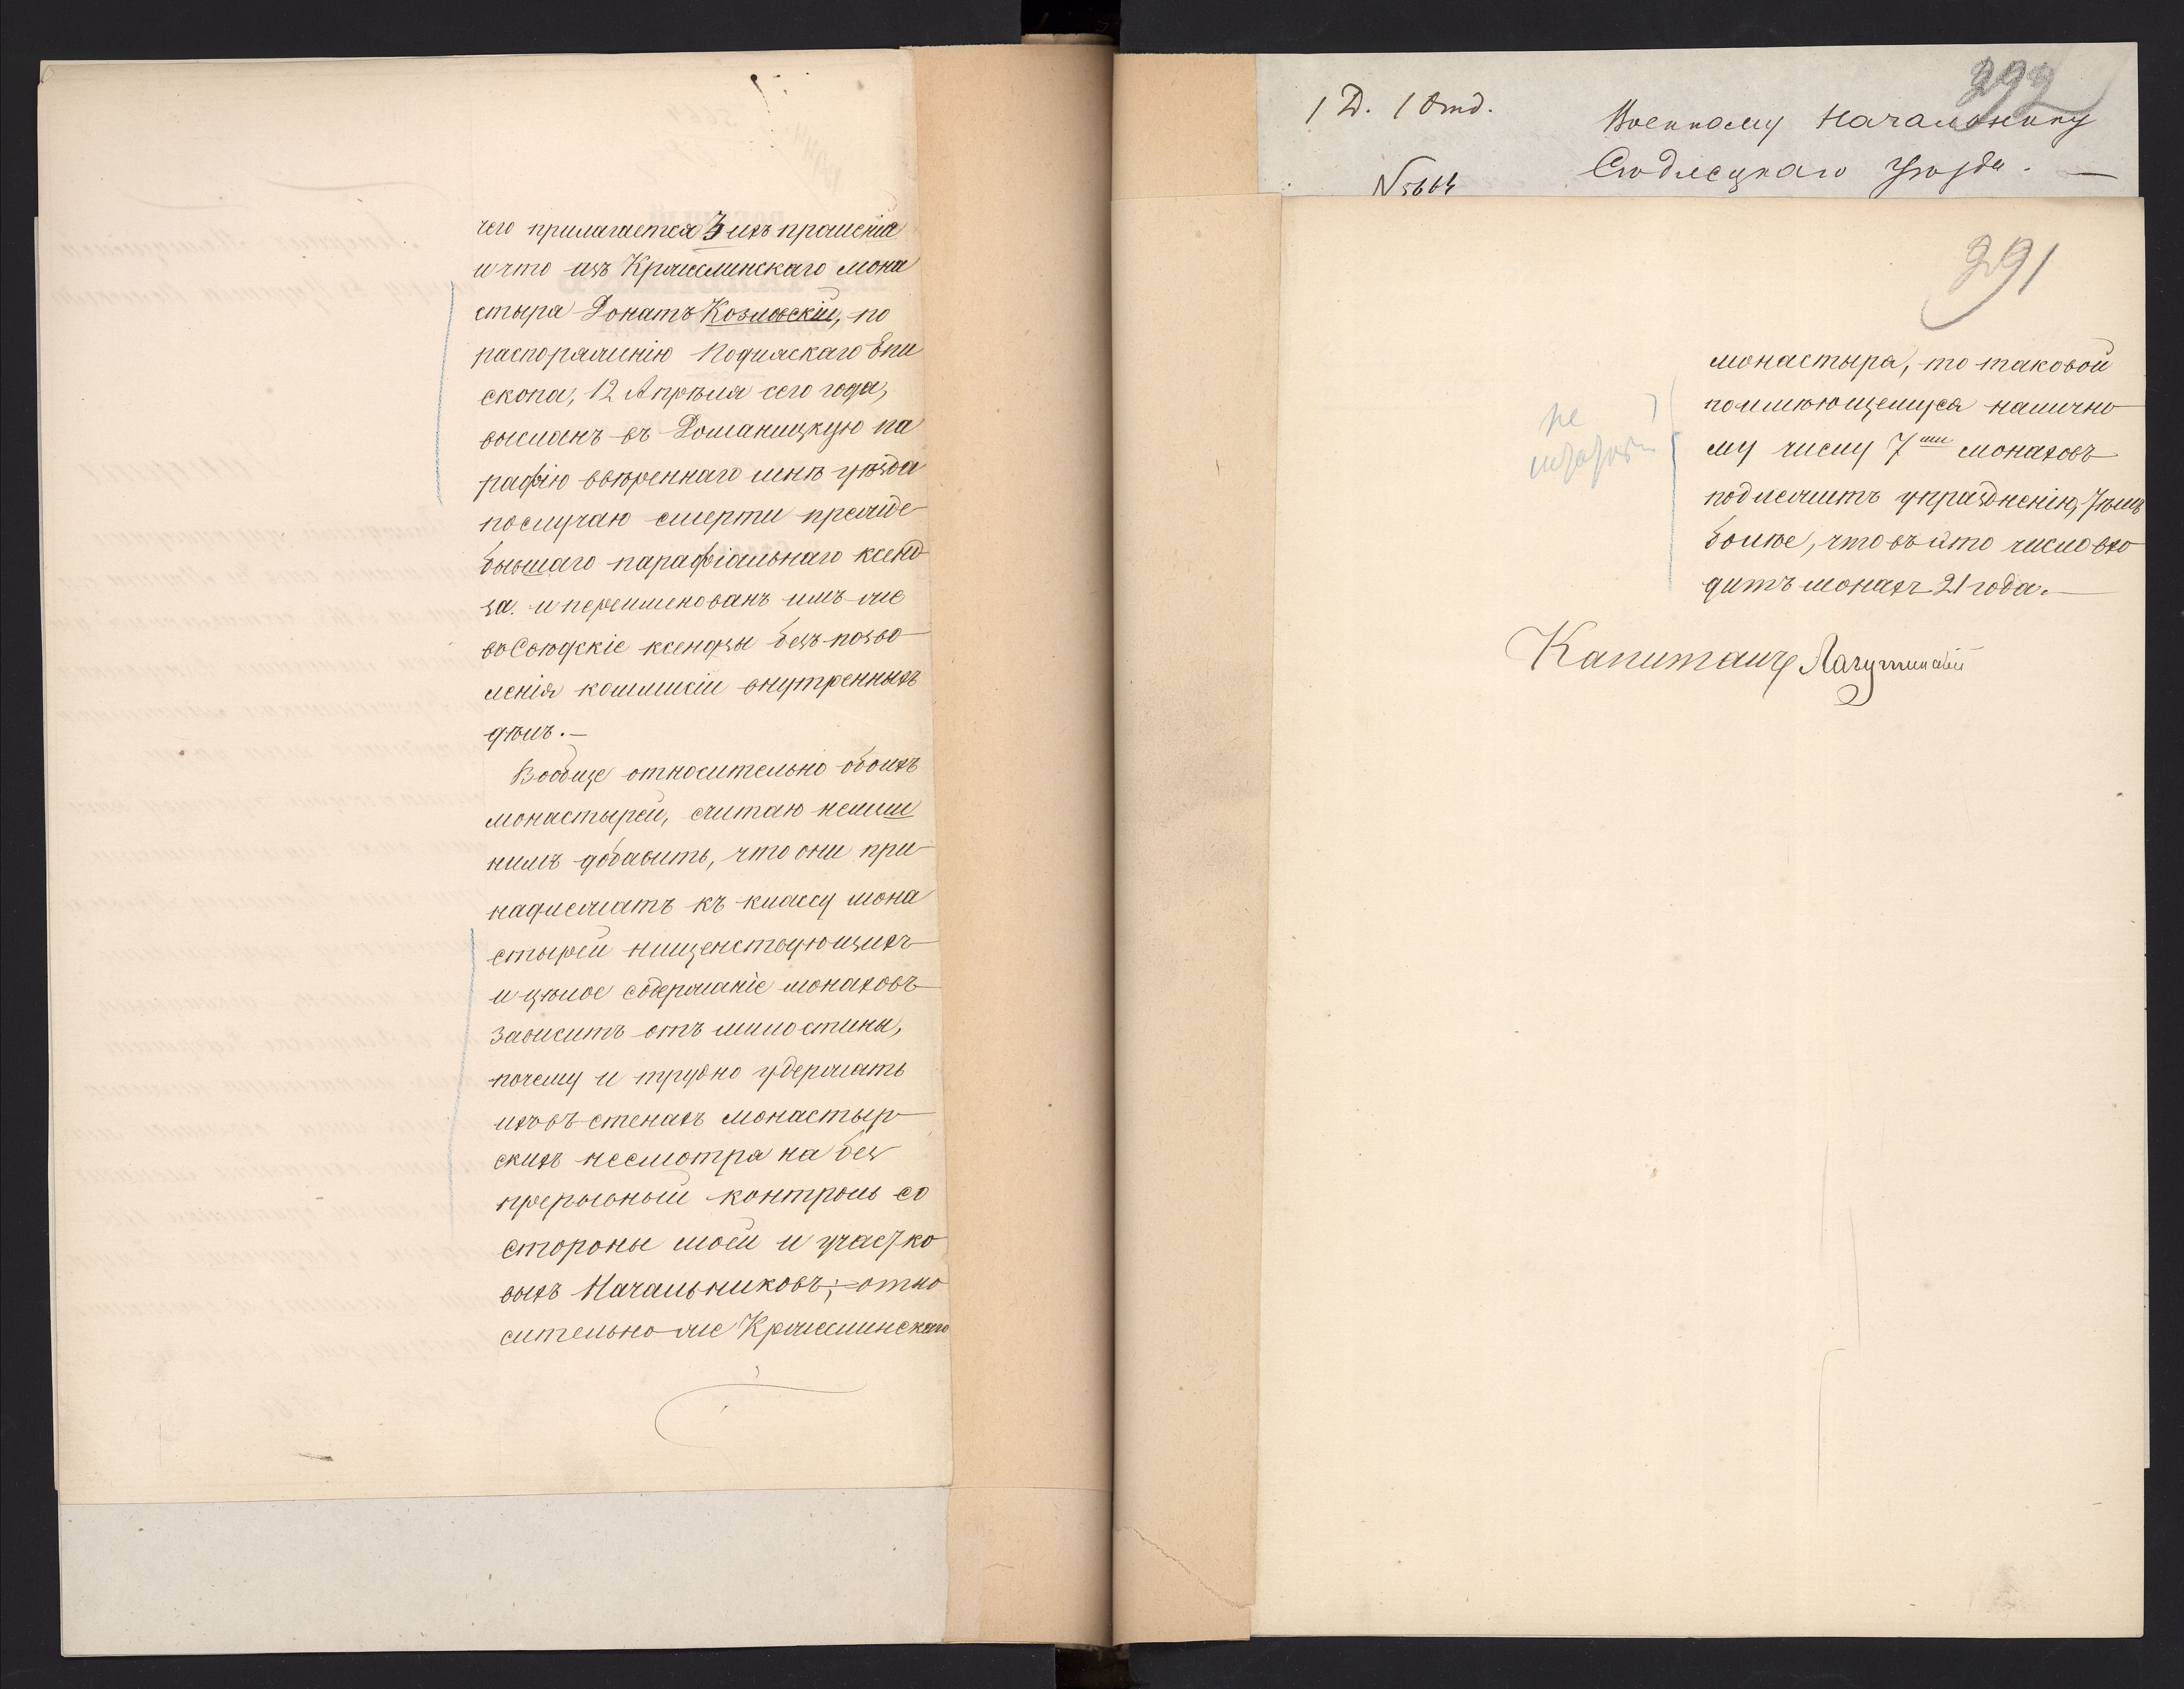 чего прилагается 3 ихъ прошенія
и что изъ Краислинскаго мона
стыря Донатъ Козловскій, по
распоряженію Подляскаго Епи
скопа, 12 Апрѣля сего года,
высланъ въ Доманицкую па
рафію ввѣреннаго мнѣ уѣзда
по случаю смерти прежде
бывшаго парафіальнаго ксенд
за и переименованъ имъ же
во Свѣцкіе ксендзы безъ позво
ленія коммисіи внутреннихъ
дѣлъ.—
Вообще относительно обоихъ
монастырей, считаю нелиш
нимъ добавить, что они при
надлежатъ къ классу мона
стырей нищенствующихъ
и цѣлое содержаніе монаховъ
зависитъ отъ милостини,
почему и трудно удержать
ихъ въ стенахъ монастыр
скихъ несмотря на без
прерывный контроль со
стороны моей и участко
выхъ Начальниковъ; отно
сительно же Краислинскаго
392
1 Д. 1 Отд.
Военному Начальнику
Сѣдлецкаго Уѣзда. —
N 5664
391
монастыря, то таковой
по имѣющемуся налично
му числу 7ми монаховъ
подлежитъ упраздненію, тѣмъ
болѣе, что въ это число вхо
дитъ монахъ 21 года.—
не
Капитанъ